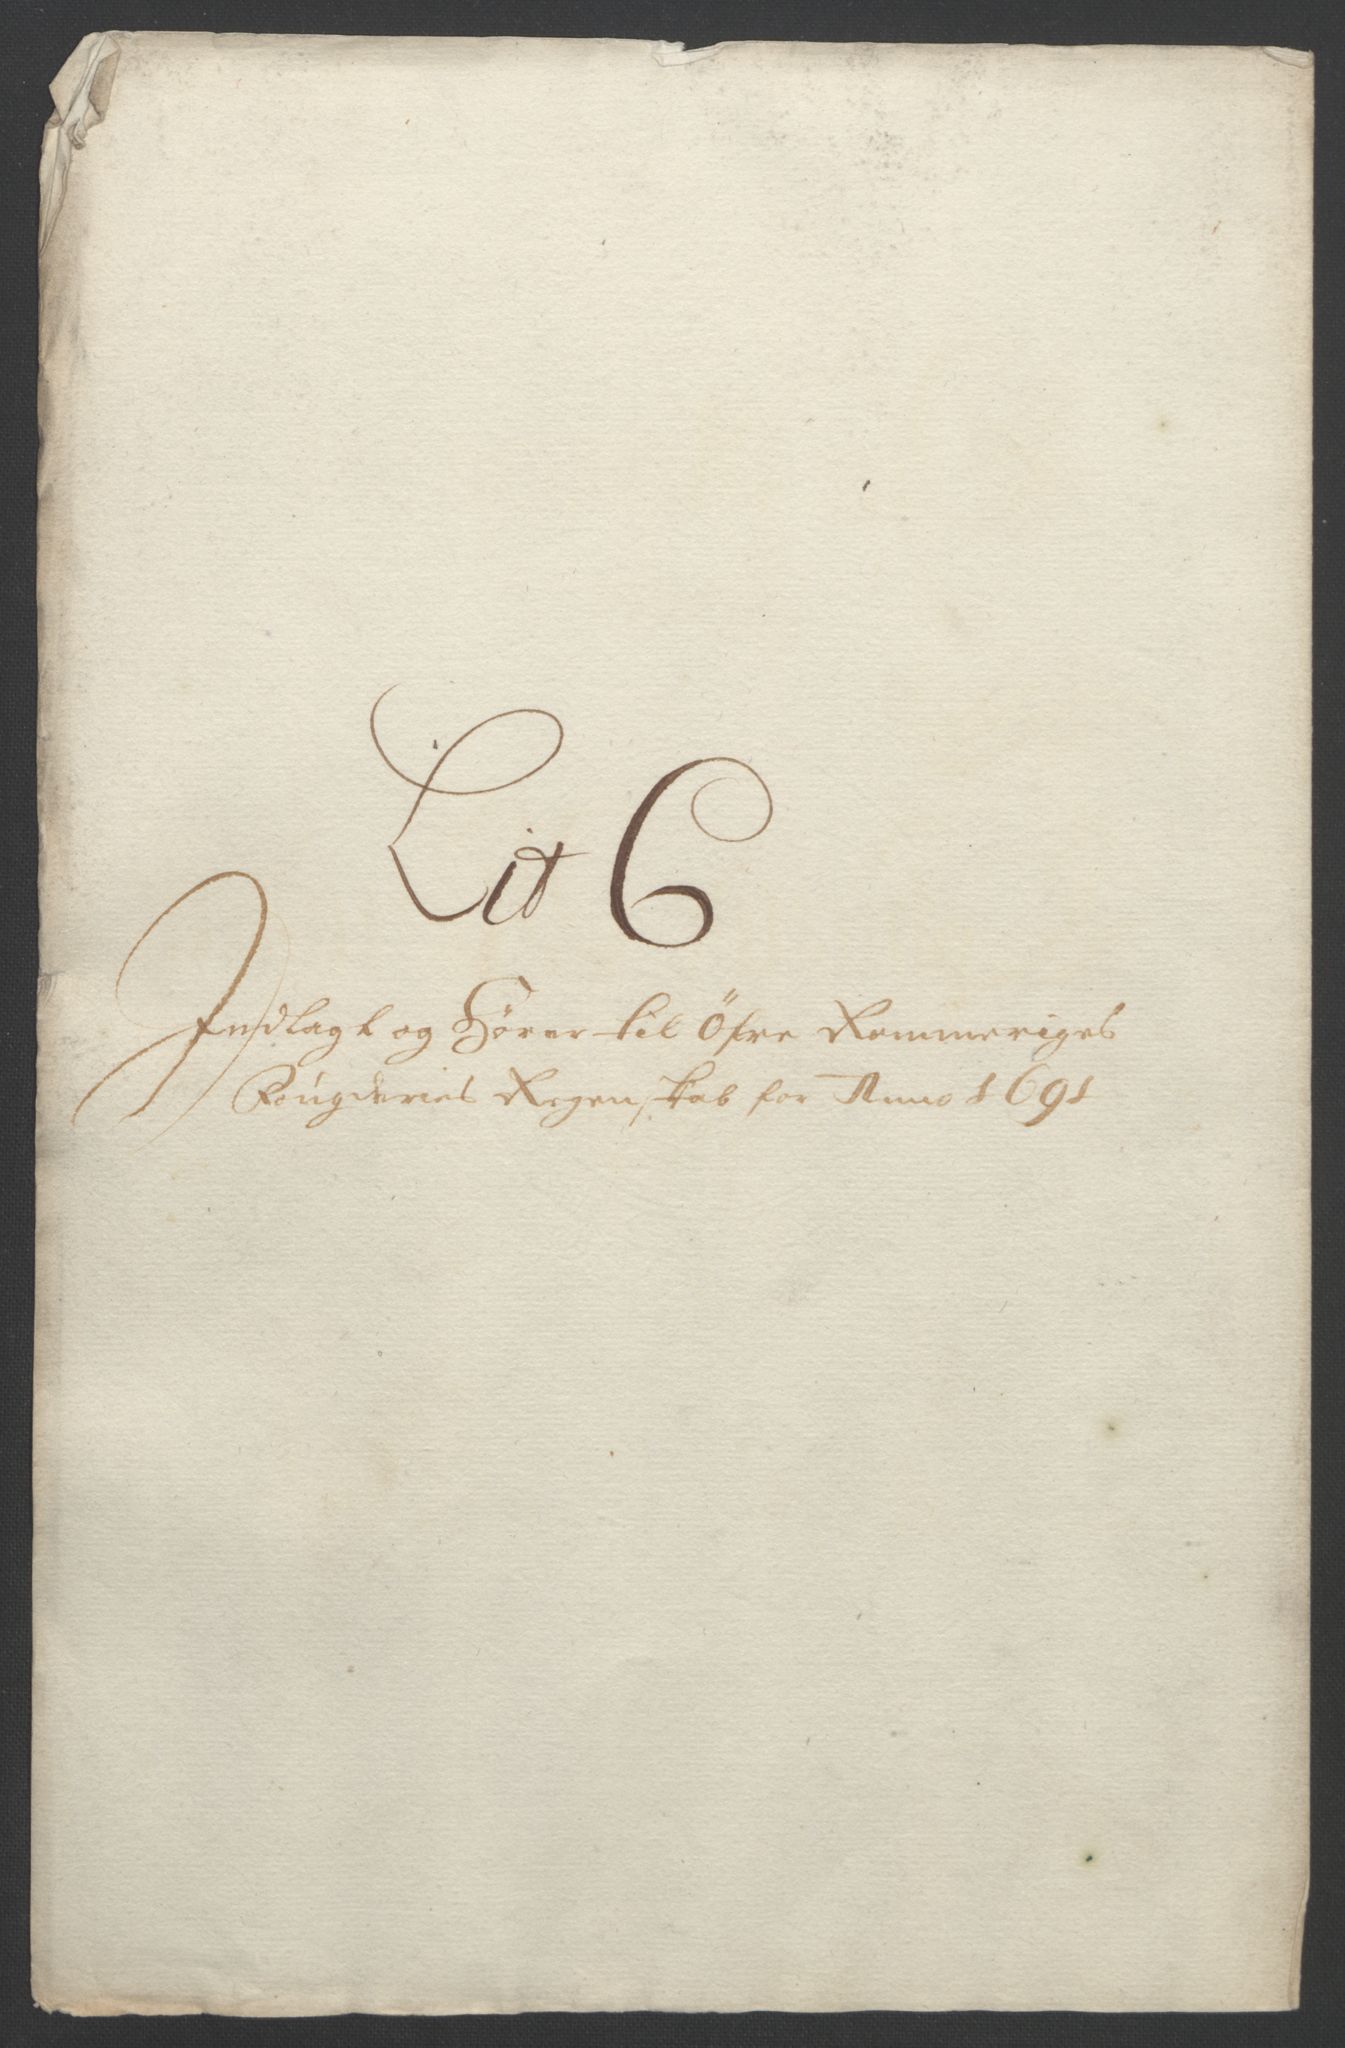 Lit C
Indlagt og Hörer til Öfre Rommeriges
Fougderies Regenskab for Anno 1691